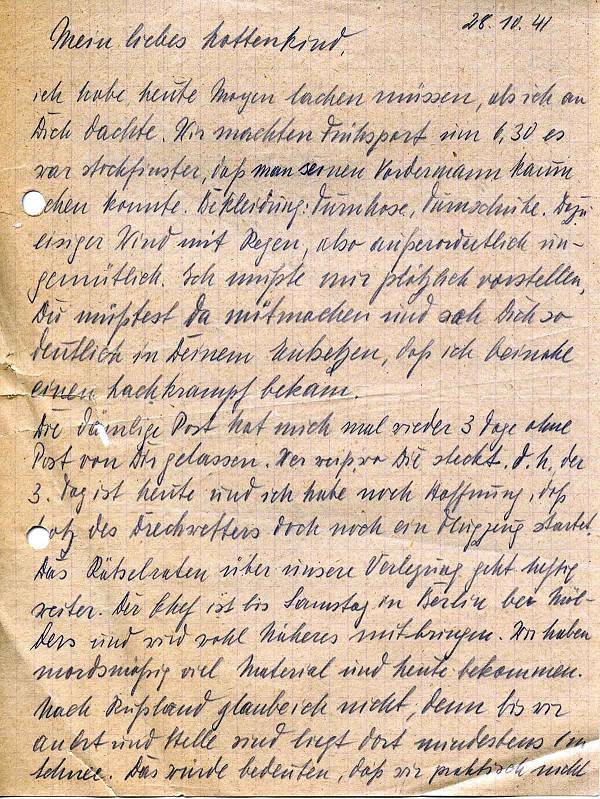 28. 10. 41
Mein liebes Kottenkind,
ich habe heute Morgen lachen müssen, als ich an
Dich dachte. Wir machten Frühsport um 6,30 es
war stockfinster, daß man seinen Vordermann kaum
sehen konnte. Bekleidung: Turnhose, Turnschuhe. Dazu
eisiger Wind mit Regen, also außerordentlich un-
gemütlich. Ich mußte mir plötzlich vorstellen,
Du müßtest da mitmachen und sah Dich so
deutlich in Deinem Entsetzen, daß ich beinahe
einen Lachkrampf bekam.
Die dämlige Post hat mich mal wieder 3 Tage ohne
Post von Dir gelassen. Wer weiß, wo die steckt. d. h. der
3. Tag ist heute und ich habe noch Hoffnung, daß
trotz des Dreckwetters doch noch ein Flugzeug startet.
Das Rätselraten über unsere Verlegung geht heftig
weiter. Der Chef ist bis Samstag in Berlin bei Möl-
ders und wird wohl Näheres mitbringen. Wir haben
mordsmäßig viel Material und Leute bekommen.
Nach Rußland glaube ich nicht, denn bis wir
an Ort und Stelle sind liegt dort mindestens
Schnee. Das würde bedeuten, daß wir praktisch nicht